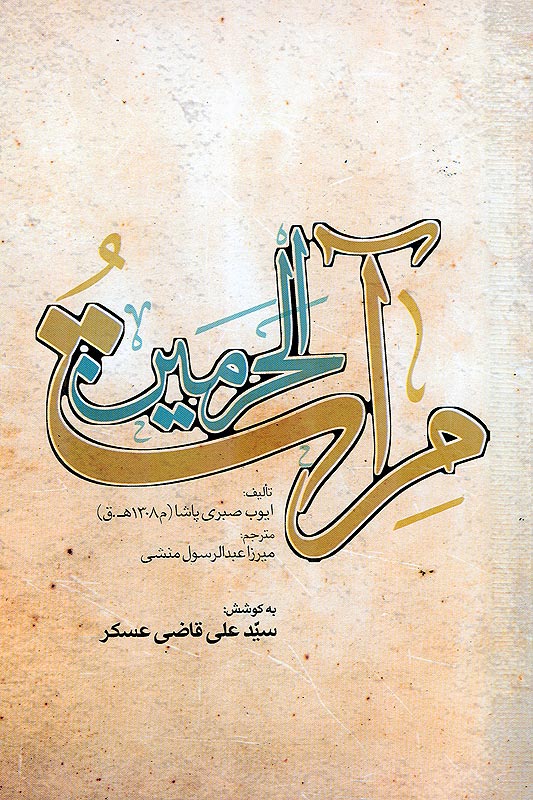 مِرآتُ الحَرَمَین
تألیف:
ایوب صبری پاشا (م۱۳۰۸هـ.ق)
مترجم:
میرزا عبدالرسول منشی
به کوشش:
سیّد علی قاضی عسکر